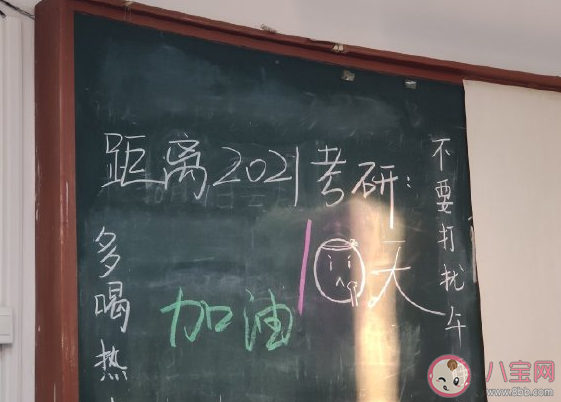 距离2021考研:
10天
加油
多喝热
不要打扰午
八宝网
www.8bb.com